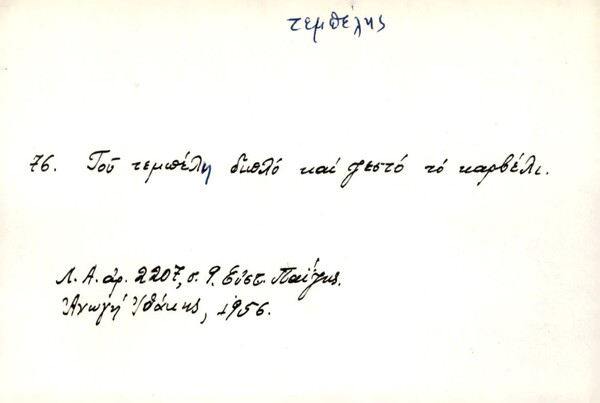 τεμπέλης
76. Τοῦ τεμπέλη διπλό καί ζεστό τό καρβέλι.
Λ. Α. ἀρ. 2207, σ. 9. Εὐστ. Παΐζης.
Ἀνωγή Ἰθάκης, 1956.